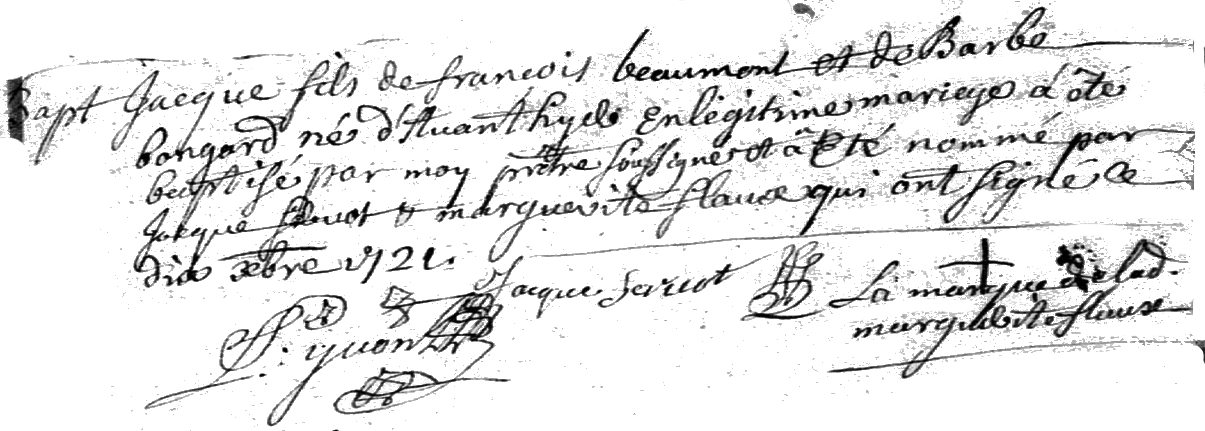 Bapt Jacque fils de francois beaumont et de Barbe
bongard né d'Avant hyer En legitime mariage a été
baptisé par moy prêtre soussigné et a Eté nommé par
Jacque & marguerite flaux qui ont signé ce
dix xbre 1721.
Jacque
La marque de lad.
marguerite flaux
yvon